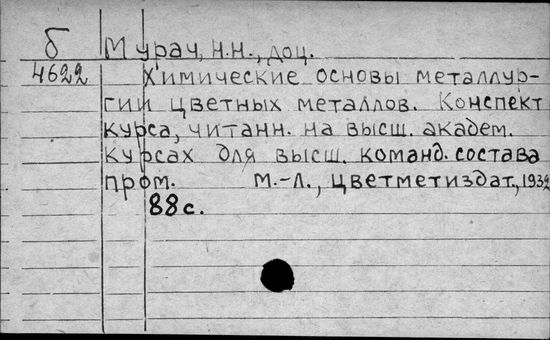 б Мурач, Н.Н., доц.
4622 Химические основы металлур-
гии цветных металлов. Конспект
курса, читанн. на высш. академ.
курсах для высш. команд. состава
пром. М.-Л., Цветметиздат, 1932
88 с.